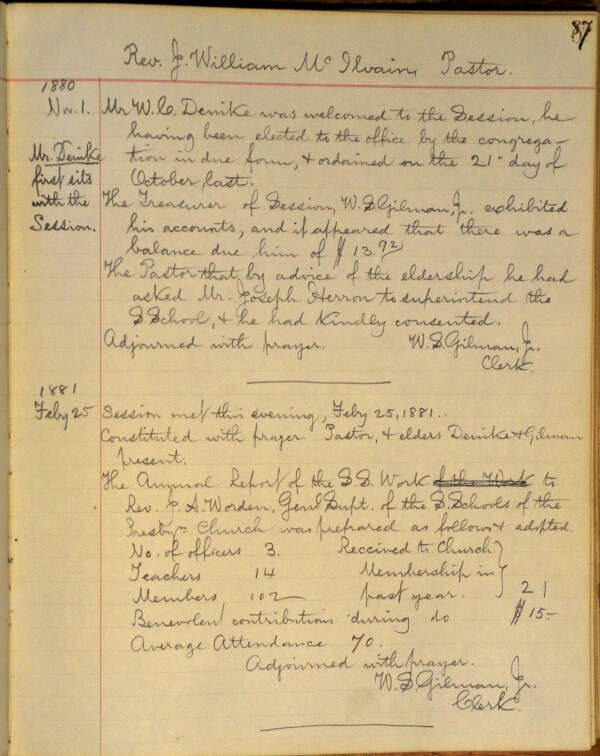 87
Rev. J. William McIlvain, Pastor.
1880
Nov. 1. Mr W. C. Denike was welcomed to the Session, he
having been elected to the office by the congrega-
Mr. Denike tion in due form, & ordained on the 21" day of
first sits October last.
with the The Treasurer of Session, W. S Gilman, Jr. exhibited
Session. his accounts, and it appeared that there was a
balance due him of $13.92
The Pastor that by advice of the eldership he had
asked Mr. Joseph Herron to superintend the
S School, & he had kindly consented.
Adjourned with prayer. W. S. Gilman, Jr.
Clerk.
1881
Feby 25 Session met this evening, Feby 25, 1881.
Constituted with prayer. Pastor, & elders Denike & Gilman
present.
The Annual Report of the S S. Work of the Work to
Rev. J. A. Worden, Genl Supt. of the S Schools of the
Presbyn Church was prepared as follows & adopted.
No. of officers 3. Received to Church
Teachers 14 Membership in
Members 102 past year. 21
Benevolent contributions during do $15-
Average Attendance 70.
Adjourned with prayer.
W. S Gilman, Jr.
Clerk.